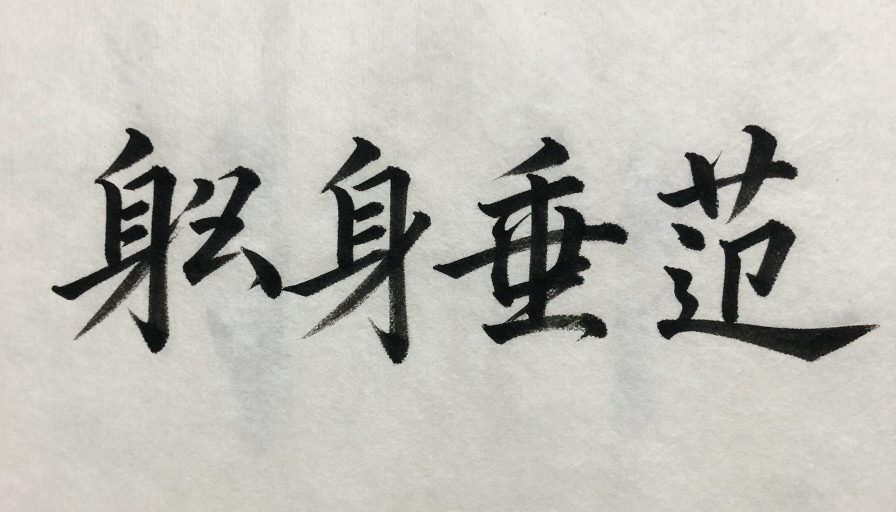 躬身垂范